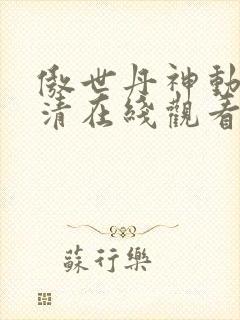 傲世丹神動
清在綫觀看
蘇行樂